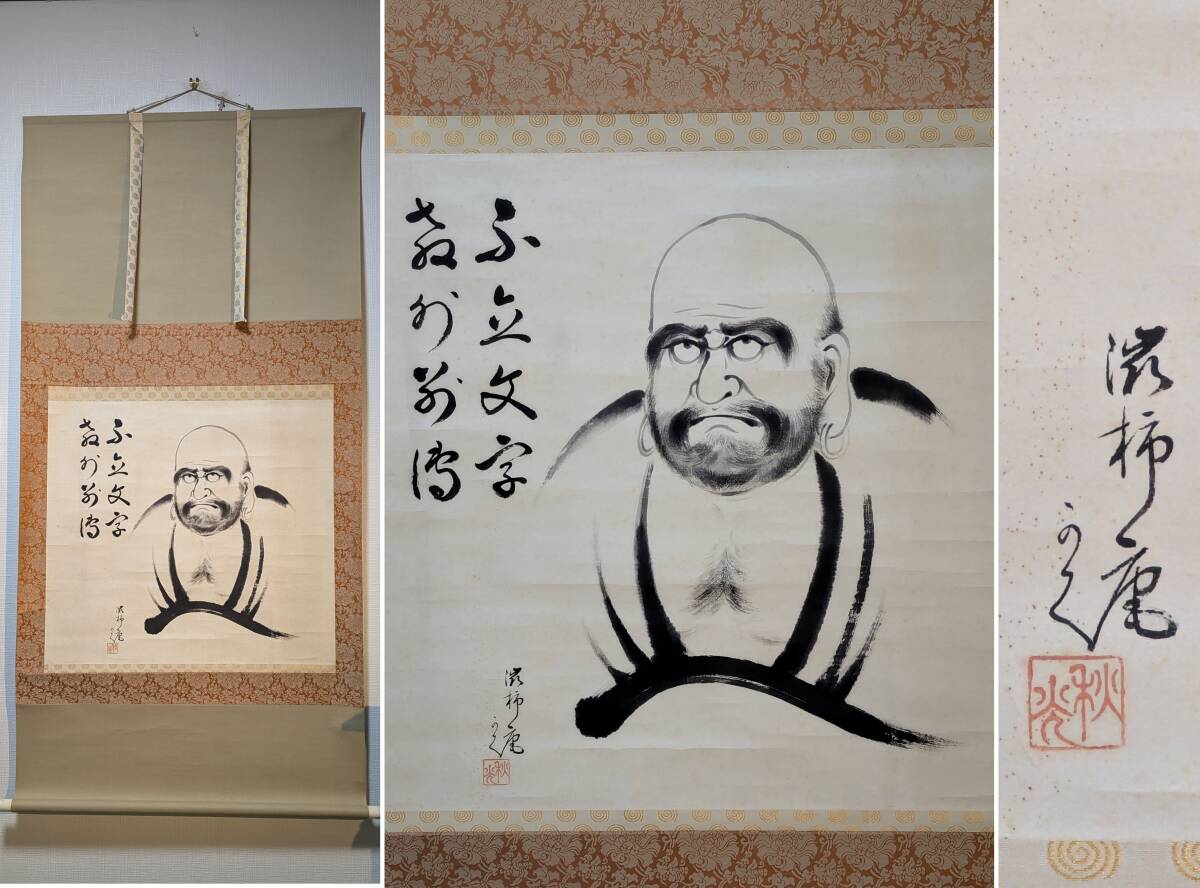 不立文字
教外別傳
渋柿庵
かく
秋光